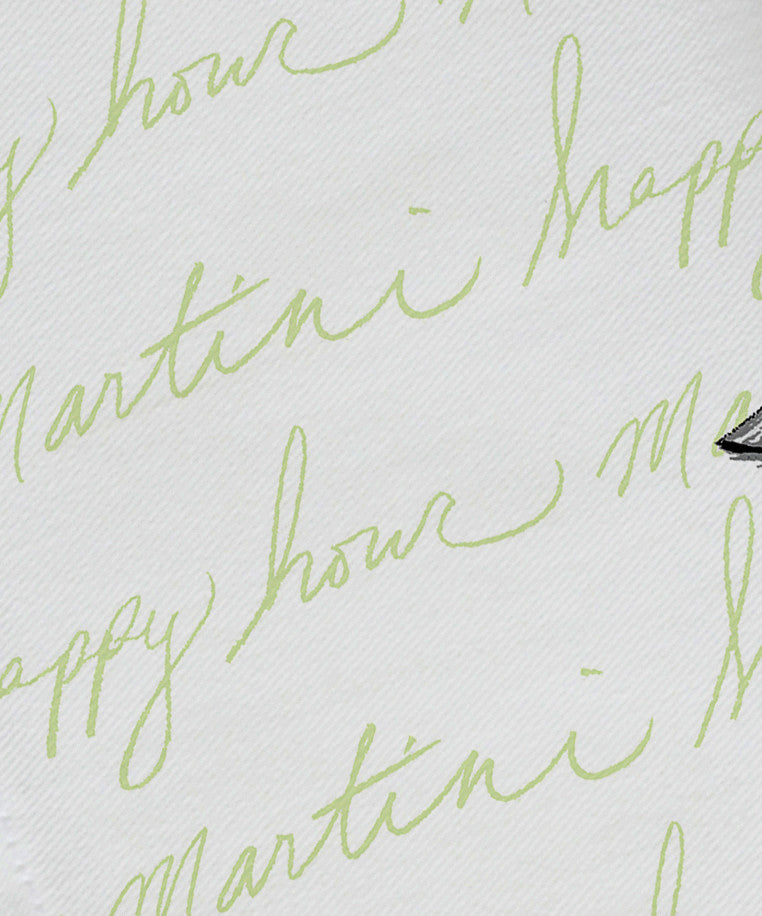 y hour
Martini happy
appy hour Ma
Martini h